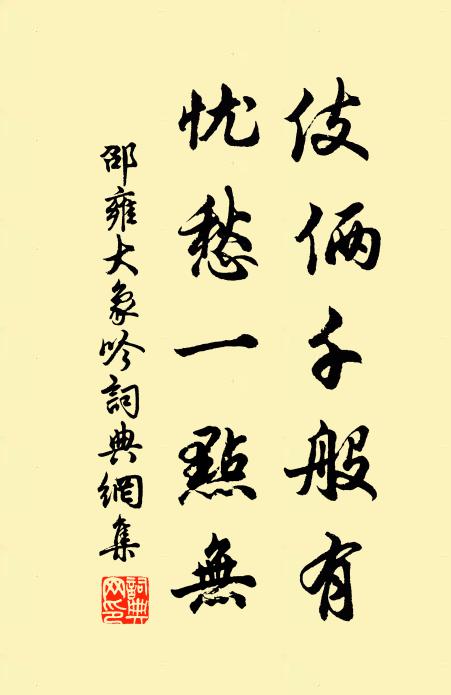 伎倆千般有
忧愁一點無
邵雍大象吟詞典網集
詞典
网印